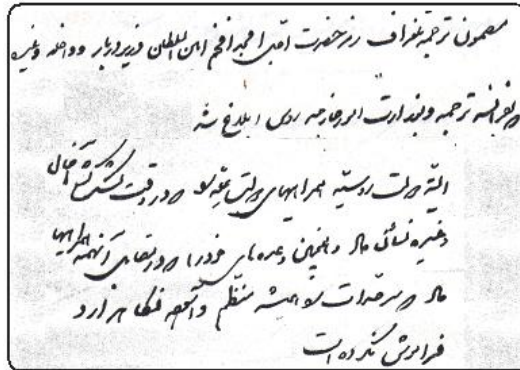 مضمون ترجمه تلگراف رمز حضرت اقدس امجد افخم امین السلطان وزیر دربار و داخله و غیره
بفرانسه ترجمه و بوزارت امور خارجه روس ابلاغ شد
البته دولت روسیه همراهیهای دولت علیه در وقت لشکرکشی آخال
ذخیره نسائی ما و همچنین وعده‌های خود را در تقاضای آنهمه همراهیها
ما در سرحدات همیشه منظم و آسوده نگاهدارد
فراموش نکرده است